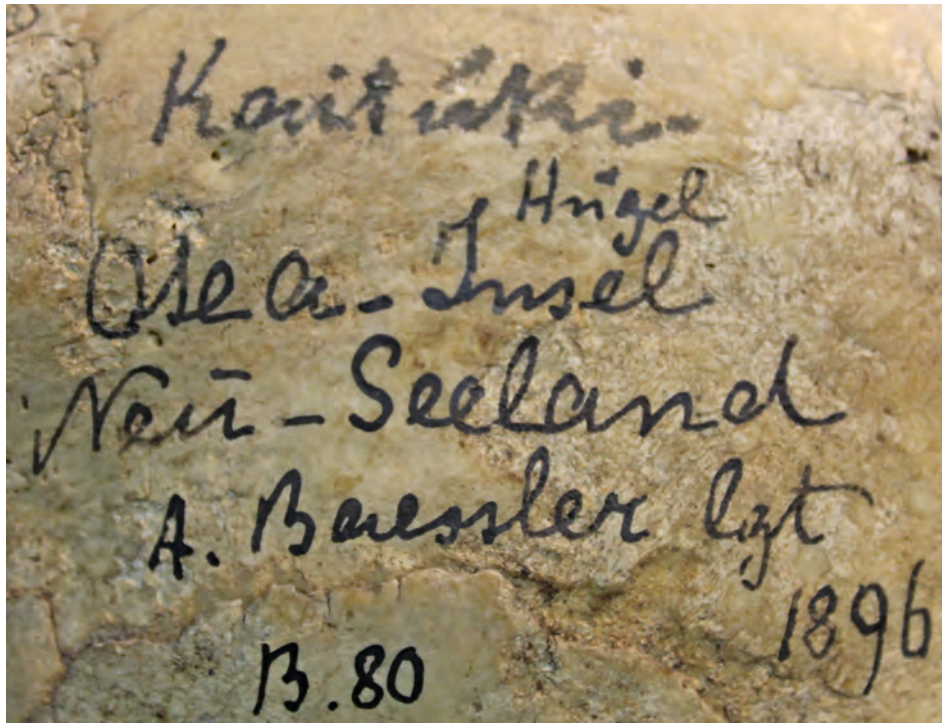 Kaitúki-
Hügel
Otea-Insel
Neū-Seeland
A. Baessler lgt
1896
B.80